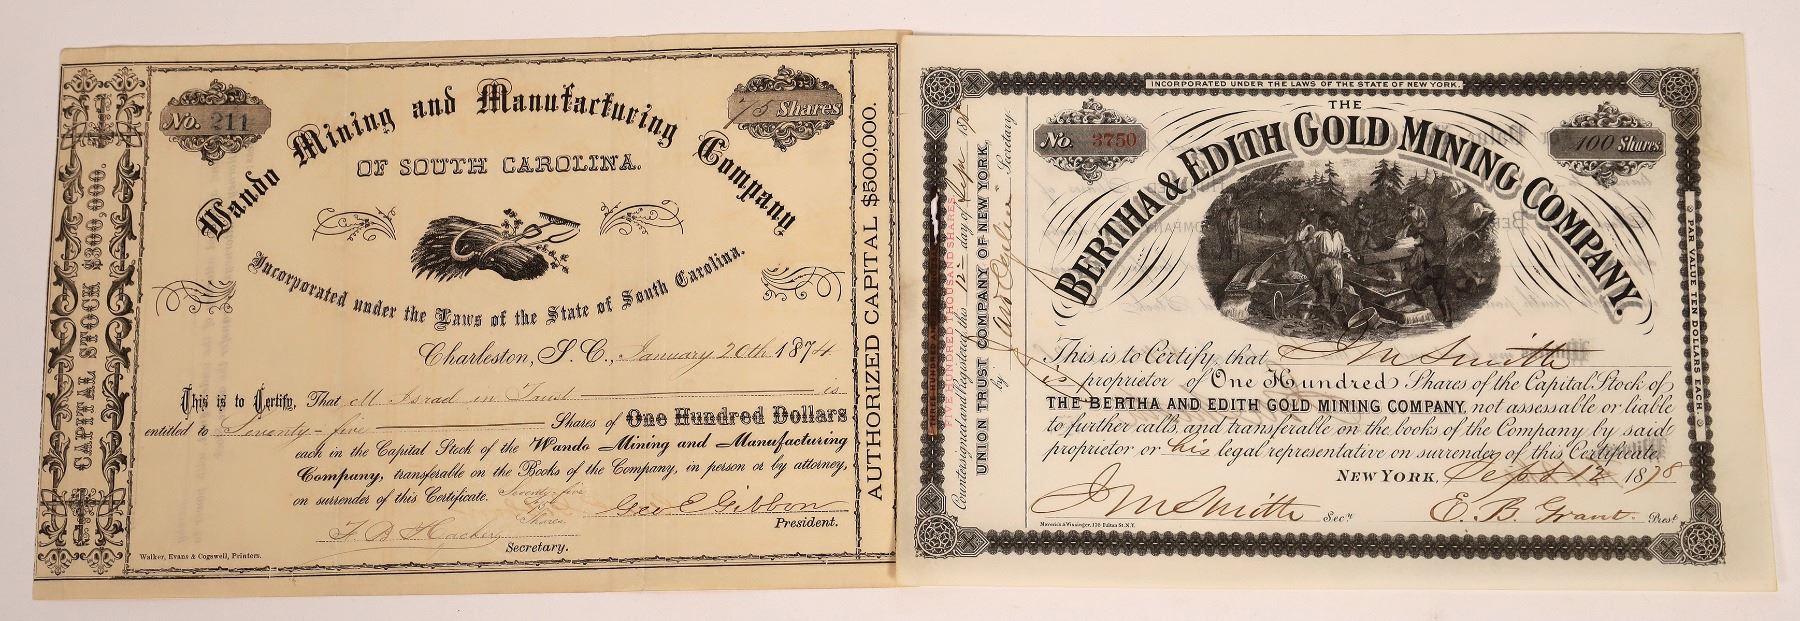 CAPITAL STOCK $300,000.
No. 211
75 Shares
Wando Mining and Manufacturing Company
OF SOUTH CAROLINA.
Incorporated under the Laws of the State of South Carolina.
Charleston, S. C., January 20th 1874
This is to Certify, That M Israel in Trust is
entitled to Seventy-five Shares of One Hundred Dollars
each in the Capital Stock of the Wando Mining and Manufacturing
Company, transferable on the Books of the Company, in person or by attorney,
on surrender of this Certificate.
Seventy-five
Shares
Geo E Gibbon
President.
Secretary.
Walker, Evans & Cogswell, Printers.
AUTHORIZED CAPITAL $500,000.
INCORPORATED UNDER THE LAWS OF THE STATE OF NEW YORK.
No. 3750
100 Shares
THE
BERTHA & EDITH GOLD MINING COMPANY.
FIVE HUNDRED THOUSAND SHARES
Countersigned and Registered this 12 day of Sep 187
UNION TRUST COMPANY OF NEW YORK,
by Secretary
PAR VALUE TEN DOLLARS EACH.
This is to Certify, that J M Smith
is proprietor of One Hundred Shares of the Capital Stock of
THE BERTHA AND EDITH GOLD MINING COMPANY, not assessable or liable
to further calls, and transferable on the books of the Company by said
proprietor or his legal representative on surrender of this Certificate.
NEW YORK, Sept 12 1878
J M Smith Secy
E. B. Grant Prest
Maverick & Wissinger, 176 Fulton St. N.Y.